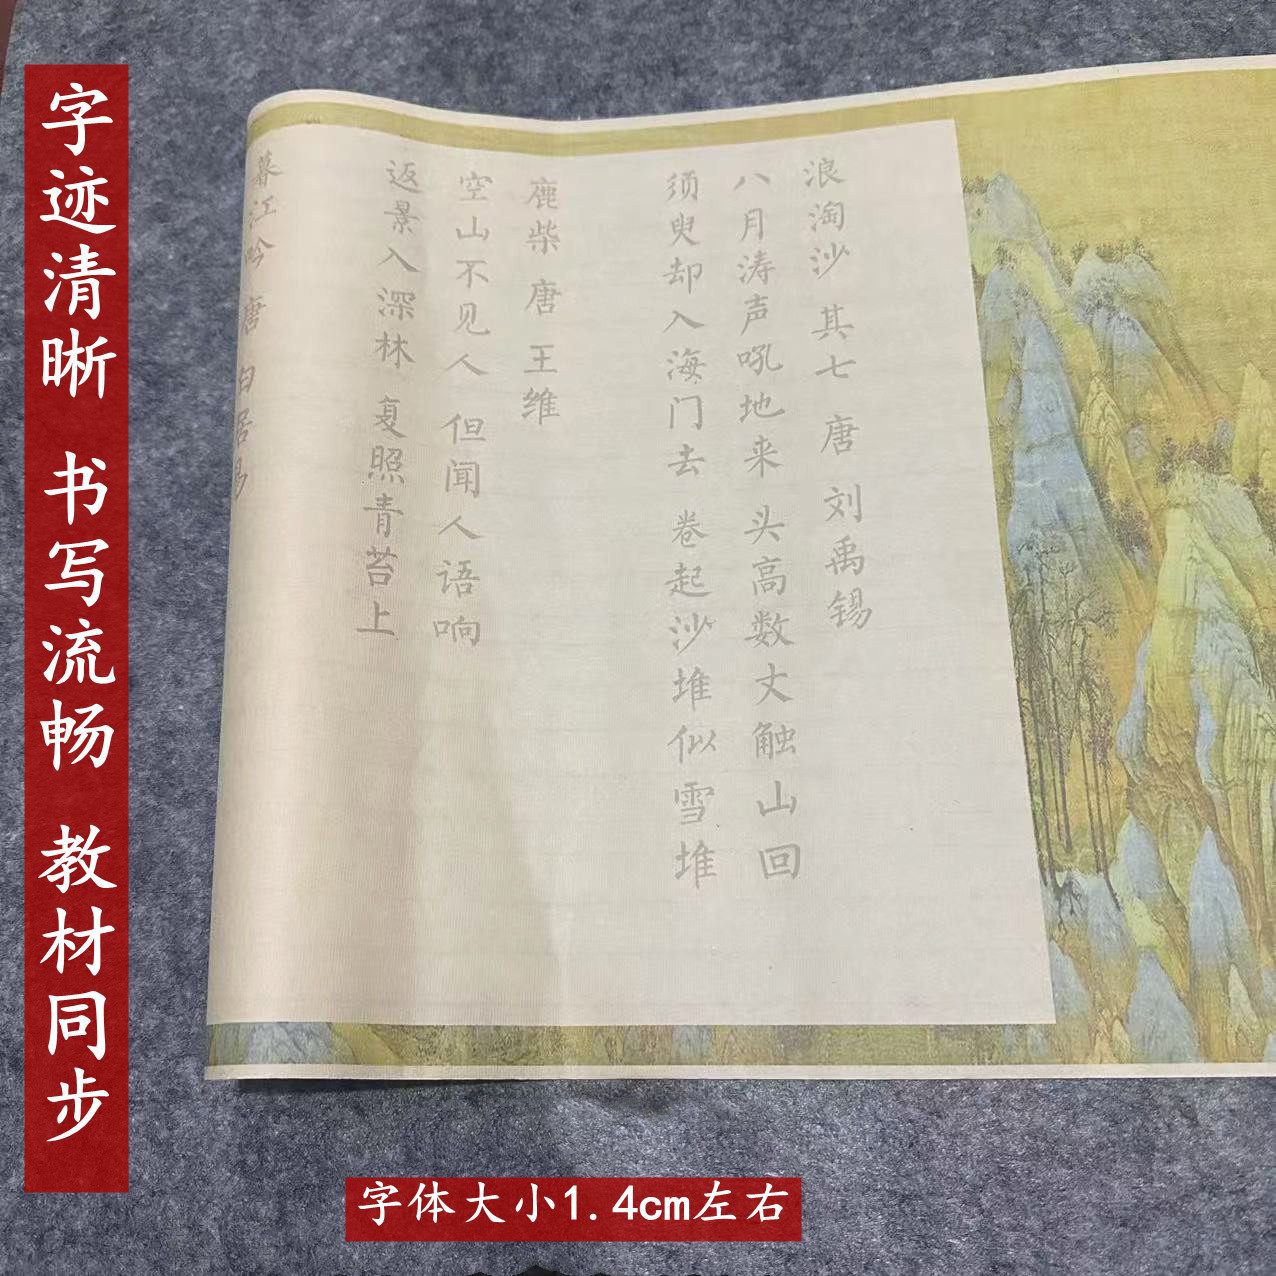 字迹清晰 书写流畅 教材同步
浪淘沙 其七 唐 刘禹锡
八月涛声吼地来 头高数丈触山回
须臾却入海门去 卷起沙堆似雪堆
鹿柴 唐 王维
空山不见人 但闻人语响
返景入深林 复照青苔上
暮江吟 唐 白居易
字体大小1.4cm左右